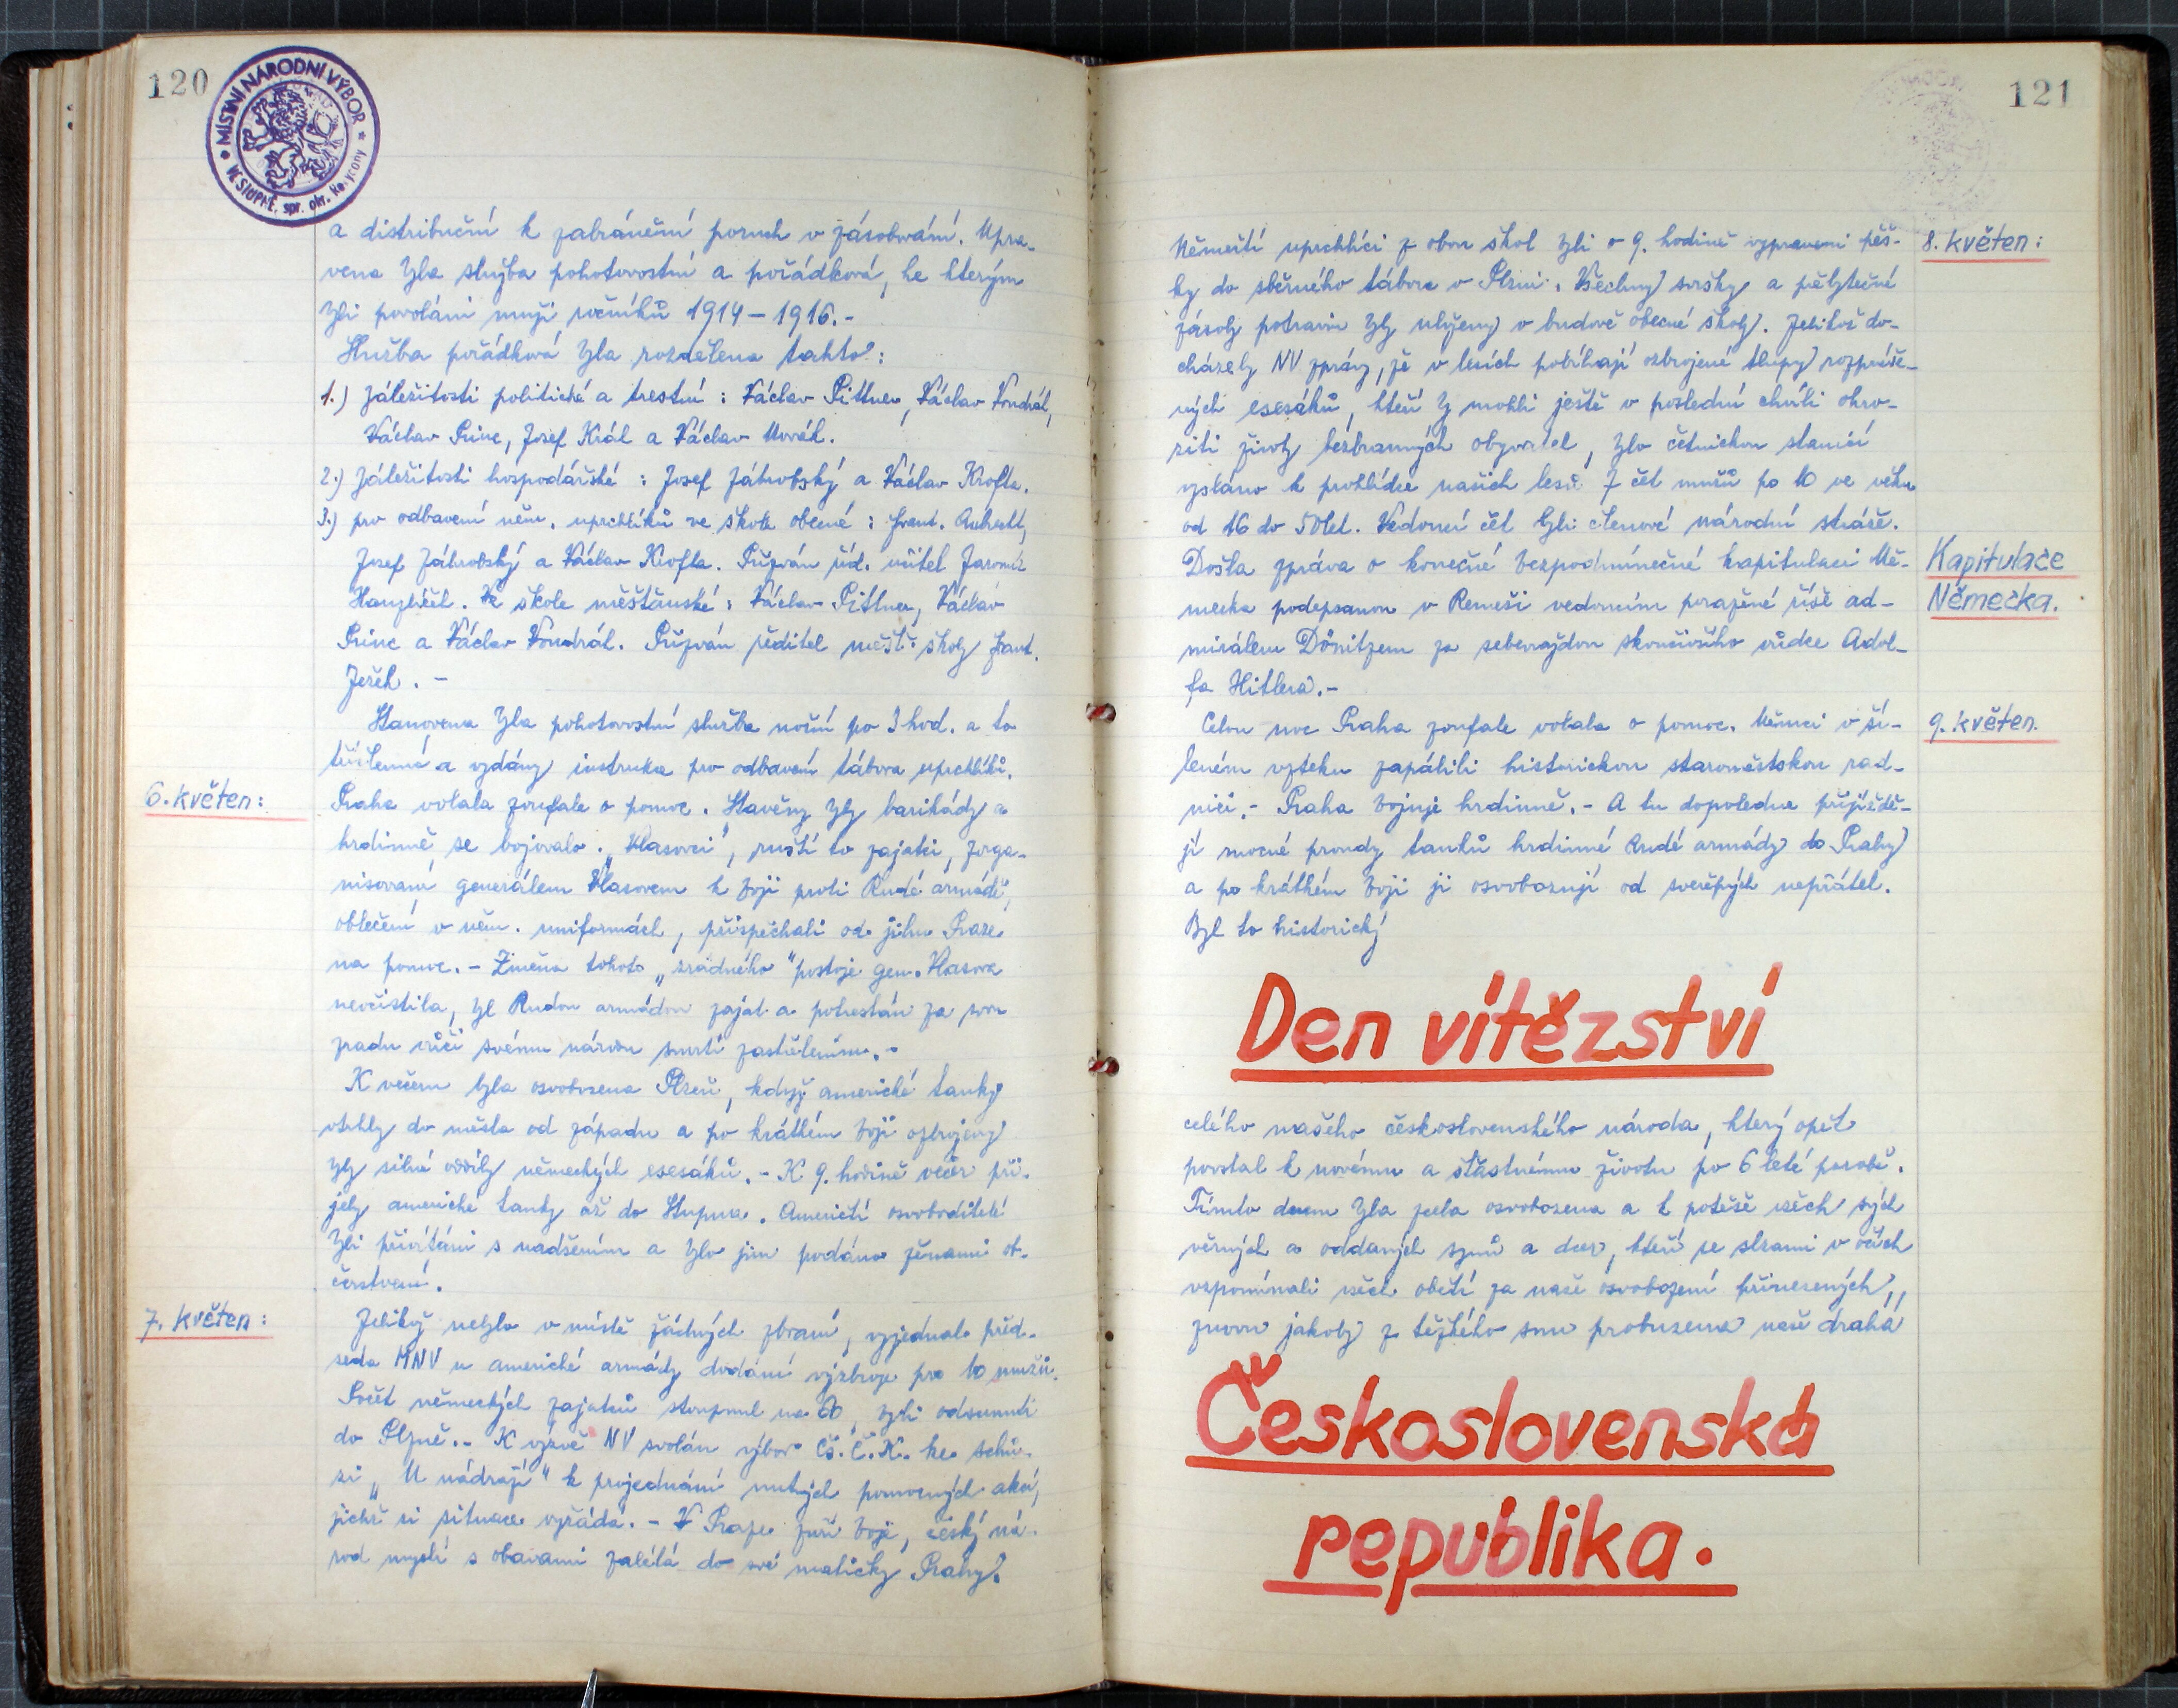 120
MÍSTNÍ NÁRODNÍ VÝBOR
VE STUPNĚ, spr. okr. Rokycany
a distribuční k zabránění poruch v zásobování. Upra-
vena byla služba pohotovostní a pořádková, ke kterým
byli povoláni muži ročníků 1914 – 1916. -
Služba pořádková byla rozdělena takto:
1.) záležitosti politické a trestní : Václav Pittner, Václav Vondrál,
Václav Princ, Josef Král a Václav Novák.
2.) záležitosti hospodářské : Josef Zábrobský a Václav Krofta.
3.) pro odbavení něm. uprchlíků ve škole obecné : Frant. Aubrecht,
Josef Zábrobský a Václav Krofta. Přizván říd. učitel Jaromír
Hanzlíček. Ve škole měšťanské : Václav Pittner, Václav
Princ a Václav Vondrál. Přizván ředitel měšť. školy Frant.
Ježek. -
Stanovena byla pohotovostní služba noční po 3 hod. a to
tříčlenná a vydány instrukce pro odbavení tábora uprchlíků.
6. květen:
Praha volala zoufale o pomoc. Stavěny byly barikády a
hrdinně se bojovalo. „Vlasovci", ruští to zajatci, zorga-
nisovaní generálem Vlasovem k boji proti Rudé armádě,
oblečení v něm. uniformách, přispěchali od jihu Praze
na pomoc. - Změna tohoto „zrádného" postoje gen. Vlasova
neočistila, byl Rudou armádou zajat a potrestán za svou
zradu vůči svému národu smrtí zastřelením. -
K večeru byla osvobozena Plzeň, když americké tanky
vtrhly do města od západu a po krátkém boji odzbrojeny
byly silné oddíly německých esesáků. - K 9. hodině večer při-
jely americké tanky až do Stupna. Američtí osvoboditelé
byli přivítáni s nadšením a bylo jim podáno ženami ob-
čerstvení.
7. květen:
Jelikož nebylo v místě žádných zbraní, vyjednal před-
seda MNV u americké armády dodání výzbroje pro 10 mužů.
Počet německých zajatců stoupnul na 60, byli odsunuti
do Plzně. - K výzvě NV svolán výbor Čs. Č. K. ke schů-
zi „U nádraží" k projednání nutných pomocných akcí,
jichž si situace vyžádá. - V Praze zuří boje, český ná-
rod myslí s obavami zalétá do své matičky Prahy.
121
8. květen:
Němečtí uprchlíci z obou škol byli o 9. hodině vypraveni pěš-
ky do sběrného tábora v Plzni. Všechny svršky a přebytečné
zásoby potravin byly uloženy v budově obecné školy. Jelikož do-
cházely NV zprávy, že v lesích pobíhají ozbrojené tlupy rozpráše-
ných esesáků, kteří by mohli ještě v poslední chvíli ohro-
ziti životy bezbranných obyvatel, bylo četnickou stanicí
vysláno k prohlídce našich lesů 7 čet mužů po 10 ve věku
od 16 do 50 let. Vedoucí čet byli členové národní stráže.
Kapitulace
Německa.
Došla zpráva o konečné bezpodmínečné kapitulaci Ně-
mecka podepsanou v Remeši vedoucím poražené říše ad-
mirálem Dönitzem za sebevraždou skončivšího vůdce Adol-
fa Hitlera. -
9. květen.
Celou noc Praha zoufale volala o pomoc. Němci v ší-
leném vzteku zapálili historickou staroměstskou rad-
nici. - Praha bojuje hrdinně. - A tu dopoledne přijíždě-
jí mocné proudy tanků hrdinné Rudé armády do Prahy
a po krátkém boji ji osvobozují od sveřepých nepřátel.
Byl to historický
Den vítězství
celého našeho československého národa, který opět
povstal k novému a šťastnému životu po 6 leté porobě.
Tímto dnem byla zcela osvobozena a k potěše všech svých
věrných a oddaných synů a dcer, kteří se slzami v očích
vzpomínali všech obětí za naše osvobození přinesených,
znovu jakoby z těžkého snu probuzena naše drahá
Československá
republika.